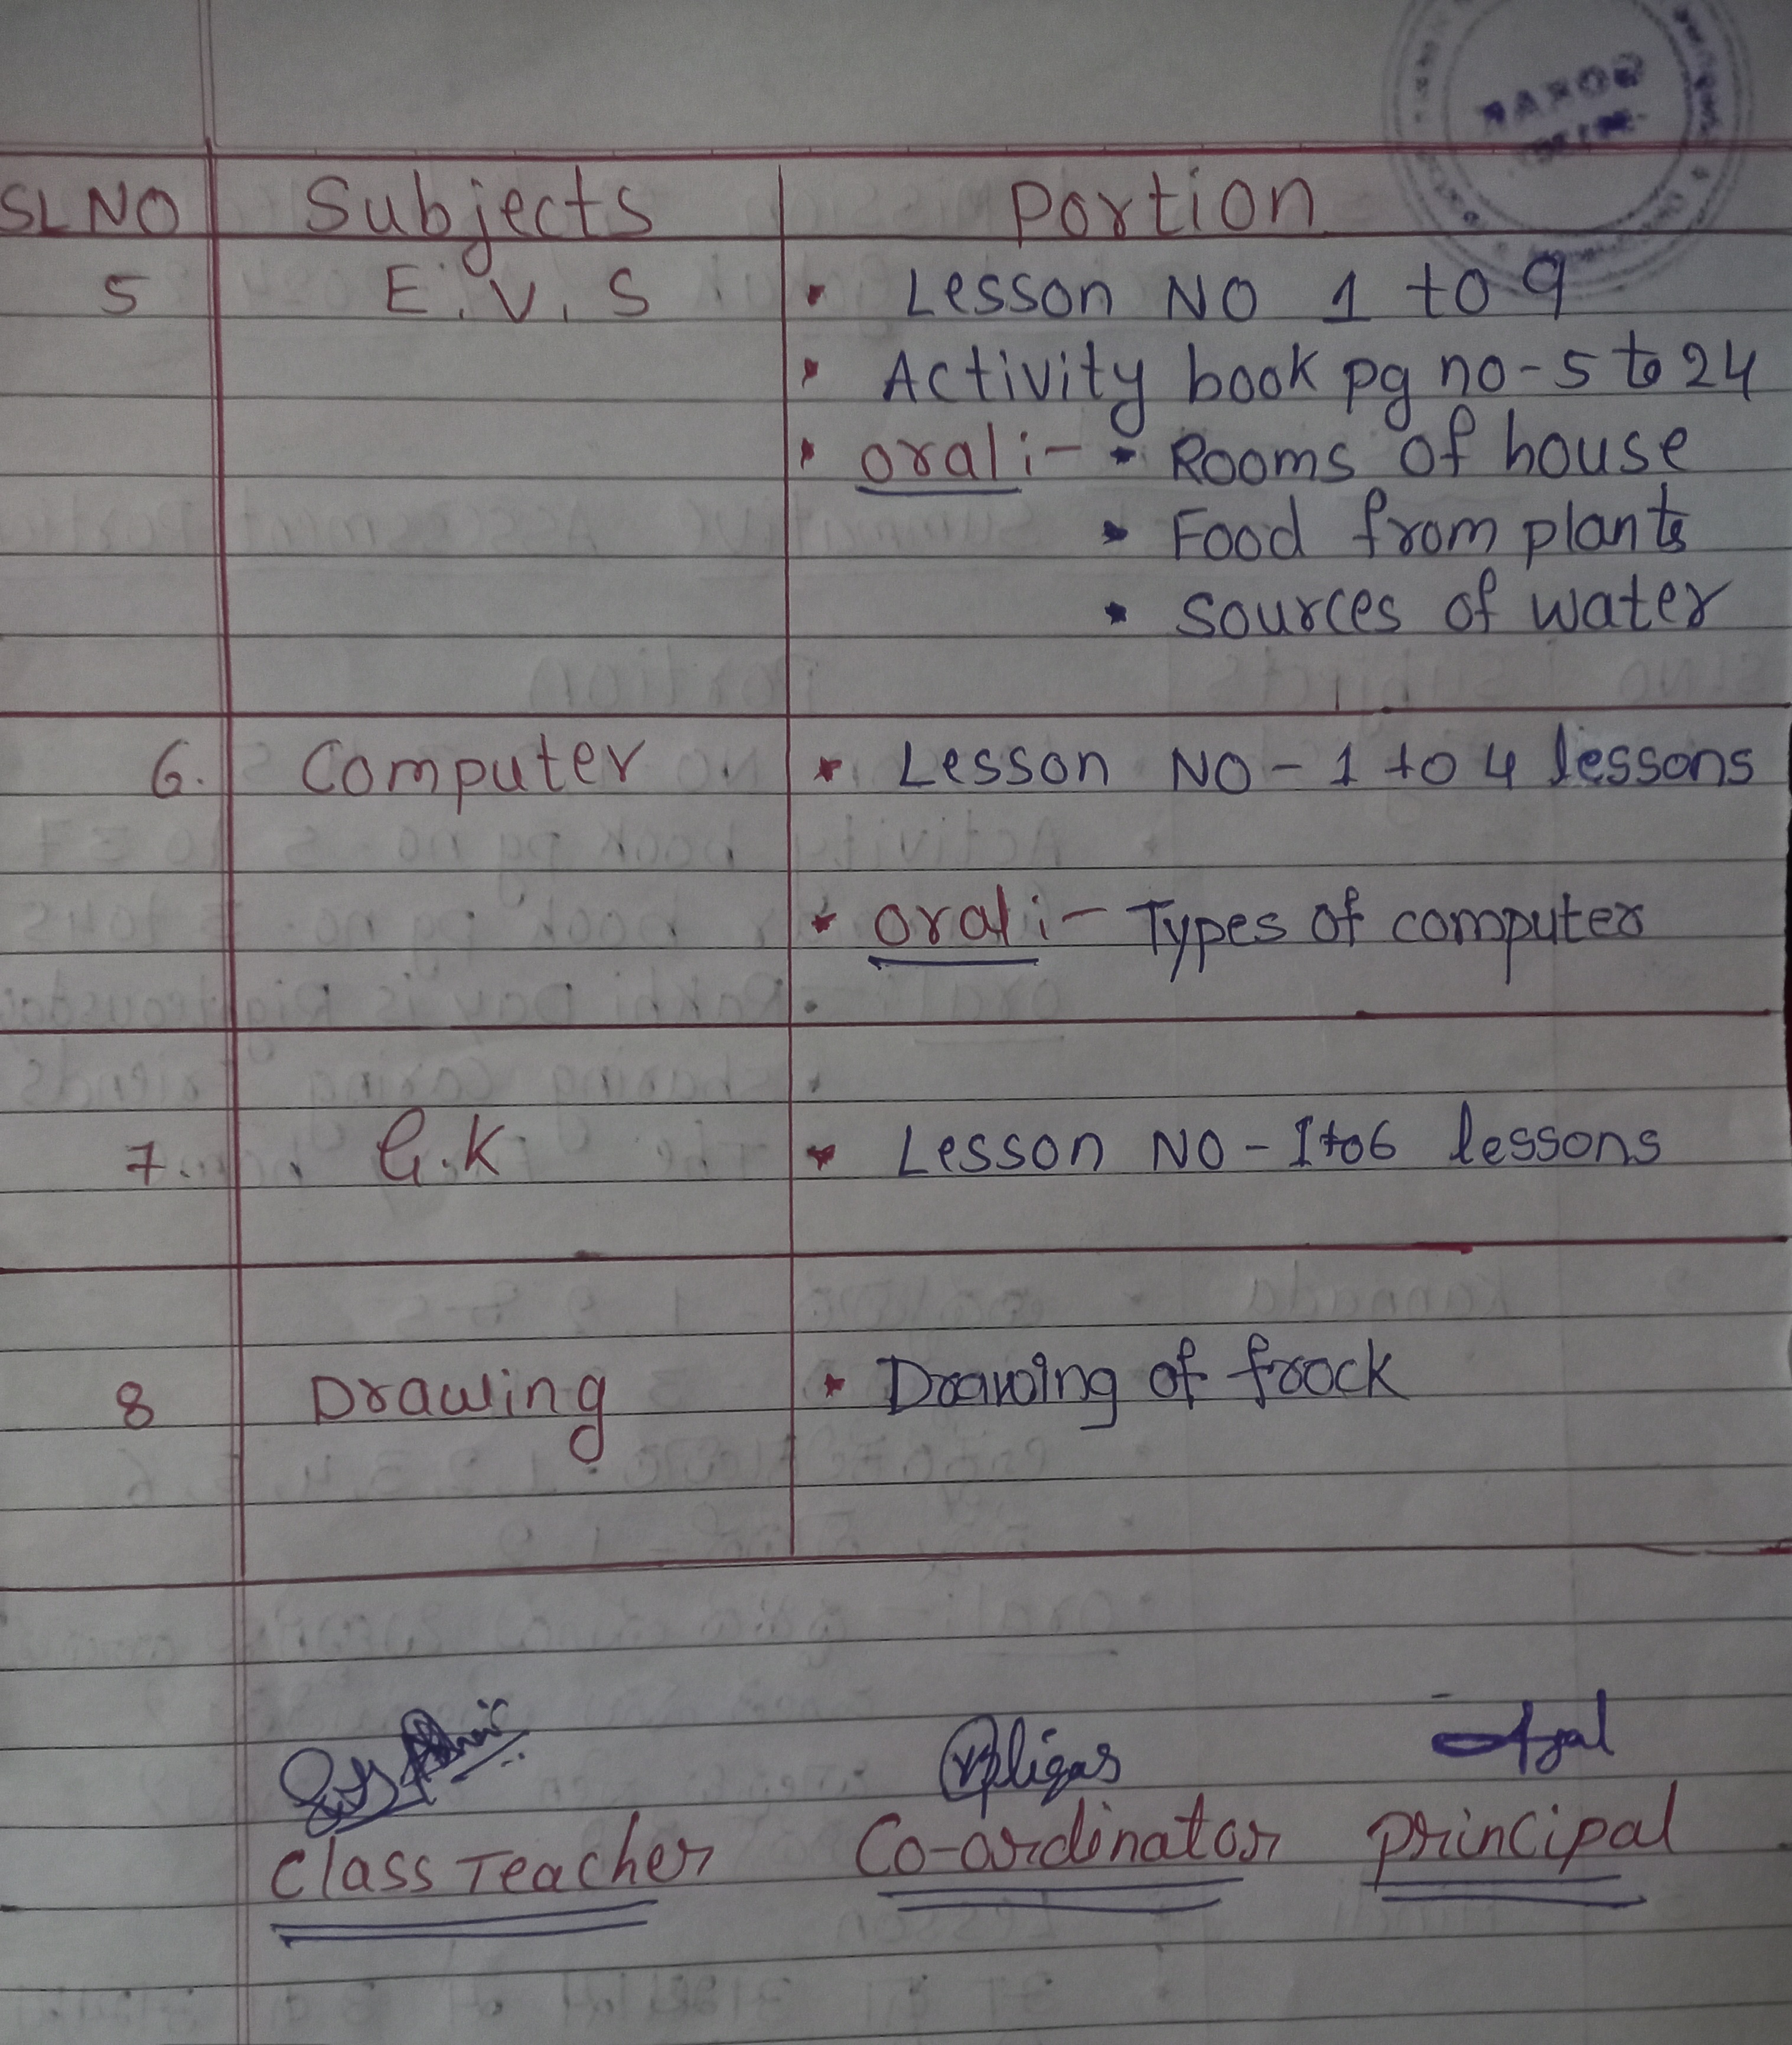 SL NO Subjects Portion
5 E.V.S • Lesson NO 1 to 9
• Activity book pg no-5 to 24
• oral:- • Rooms of house
• Food from plants
• Sources of water
6. Computer • Lesson NO-1 to 4 lessons
• oral:- Types of computer
7. G.K • Lesson NO-1 to 6 lessons
8 Drawing • Drawing of frock
Class Teacher Co-ordinator principal